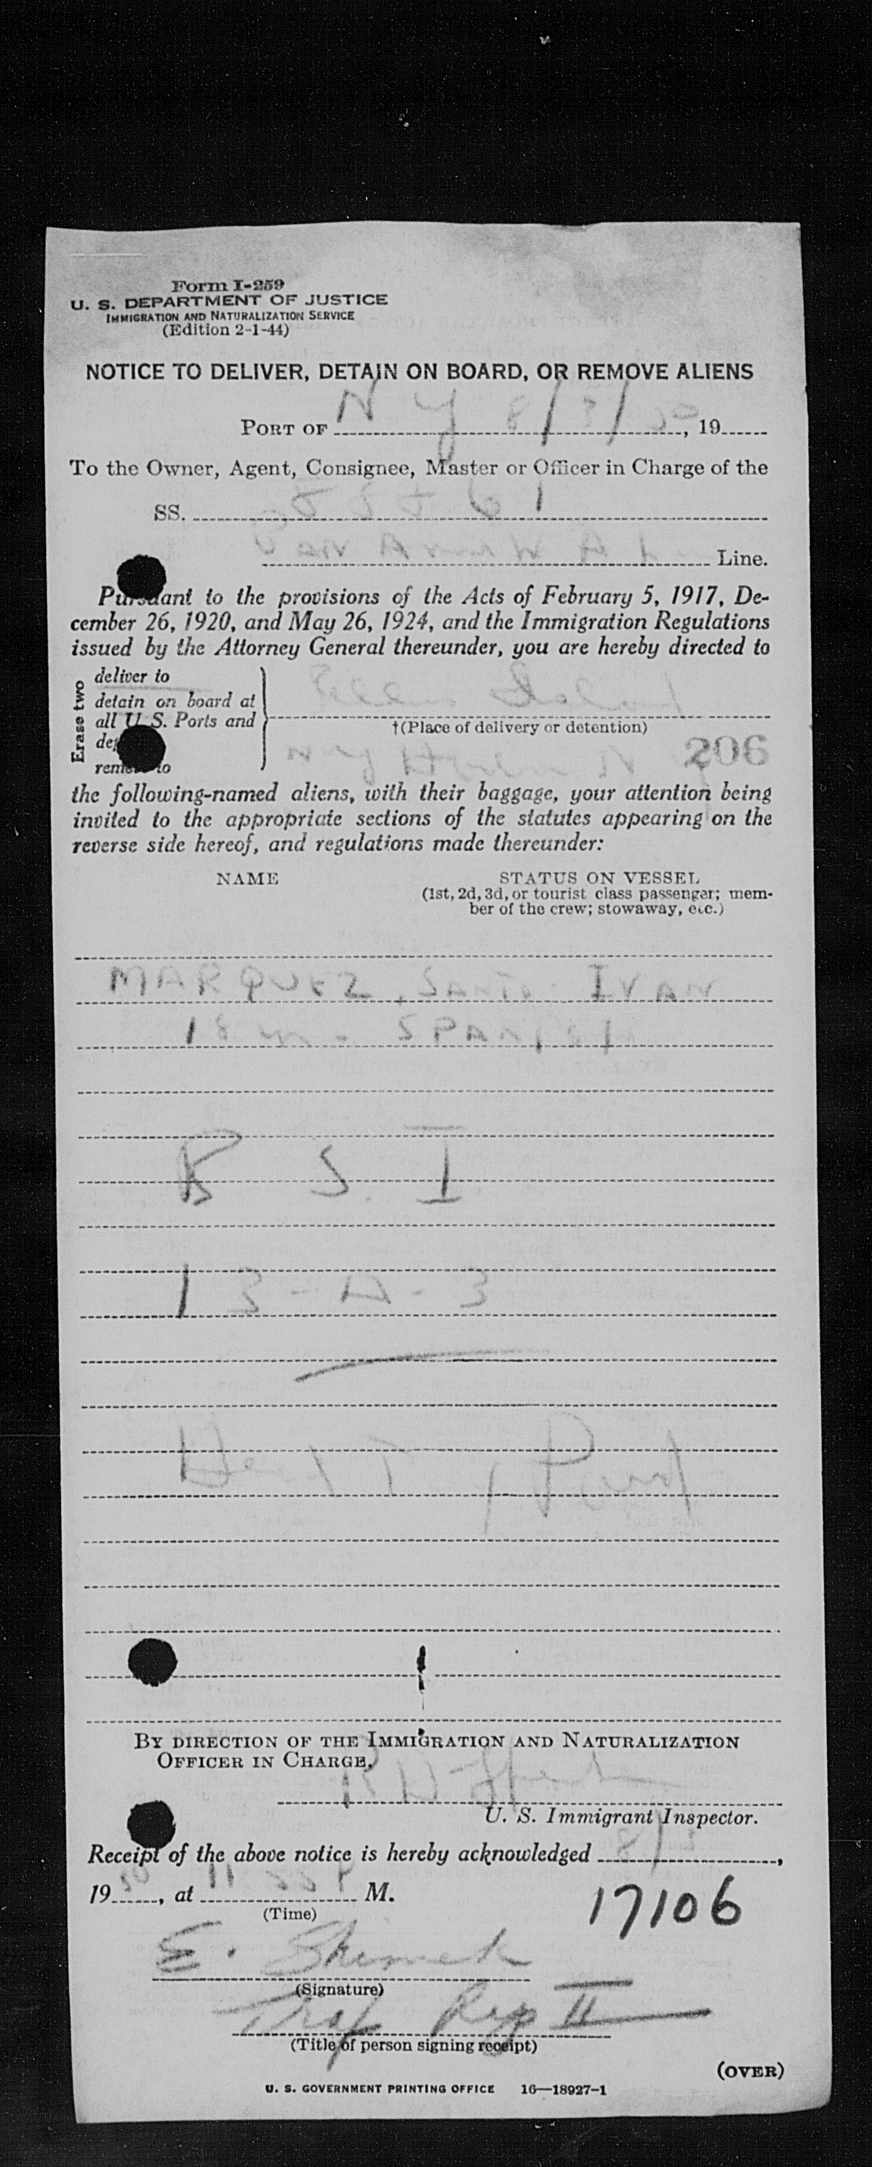 Form I-259
U. S. DEPARTMENT OF JUSTICE
IMMIGRATION AND NATURALIZATION SERVICE
(Edition 2-1-44)
NOTICE TO DELIVER, DETAIN ON BOARD, OR REMOVE ALIENS
PORT OF N Y 8/3/50, 19
To the Owner, Agent, Consignee, Master or Officer in Charge of the
SS.
Line.
Pursuant to the provisions of the Acts of February 5, 1917, De-
cember 26, 1920, and May 26, 1924, and the Immigration Regulations
issued by the Attorney General thereunder, you are hereby directed to
Erase two
deliver to
detain on board at
all U. S. Ports and
remove to
Ellis Island
†(Place of delivery or detention)
N Y Harbor N Y
206
the following-named aliens, with their baggage, your attention being
invited to the appropriate sections of the statutes appearing on the
reverse side hereof, and regulations made thereunder:
NAME
STATUS ON VESSEL
(1st, 2d, 3d, or tourist class passenger; mem-
ber of the crew; stowaway, etc.)
MARQUES, Santo IVAN
18 m - SPANISH
B S I
13-A-3
BY DIRECTION OF THE IMMIGRATION AND NATURALIZATION
OFFICER IN CHARGE.
U. S. Immigrant Inspector.
Receipt of the above notice is hereby acknowledged 8/3,
19 50, at 11 55 P M.
(Time)
17106
E. Shimek
(Signature)
Traf Rep II
(Title of person signing receipt)
(OVER)
U. S. GOVERNMENT PRINTING OFFICE 16—18927-1